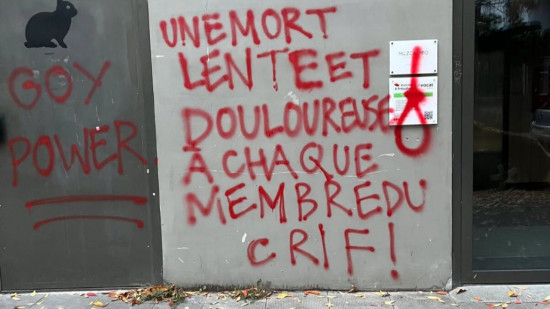 GOY
POWER
UNE MORT
LENTE ET
DOULOUREUSE
À CHAQUE
MEMBRE DU
CRIF!